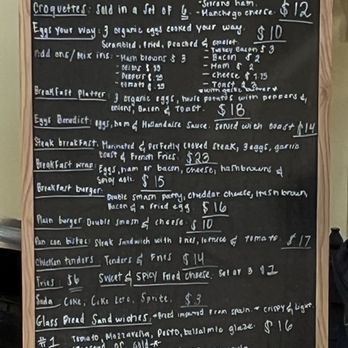 Croquettes: Sold in a set of 6. - Serrano ham. - Manchego cheese. $12
Eggs your way: 3 organic eggs cooked your way. $10
Scrambled, Fried, Poached & omelet
Add ons / Mix ins: - Ham browns $3 - Turkey bacon $3
- Bacon $2
- Ham $
- Peppers $.75 - cheese $1.75
- tomato $.75 - Toast $3
Breakfast Platter: 3 organic eggs, home potatos with peppers &
onions, Bacon & Toast. $18
Eggs Benedict: eggs, ham & Hollandaise Sauce. Served with toast $14
Steak breakfast: Marinated & Perfectly cooked steak, 3 eggs, garlic
toast & French Fries. $23
Breakfast wrap: Eggs, ham or bacon, cheese, hashbrowns &
Spicy aoli. $15
Breakfast burger: Double smash patty, cheddar cheese, Hash brown
Bacon & a fried egg $16
Plain burger Double smash & cheese. $10
Pan con bistec: Steak Sandwich with onions, lettuce & tomato. $17
Chicken tenders: Tenders & Fries $14
Fries: $6 Sweet & Spicy Fried cheese. Set of 3 $
Soda: Coke, Coke Zero, Sprite. $3
Glass Bread Sandwiches: Bread imported from Spain. crispy & light.
#1 Tomato, Mozzarella, Pesto, balsalmic glaze. $16